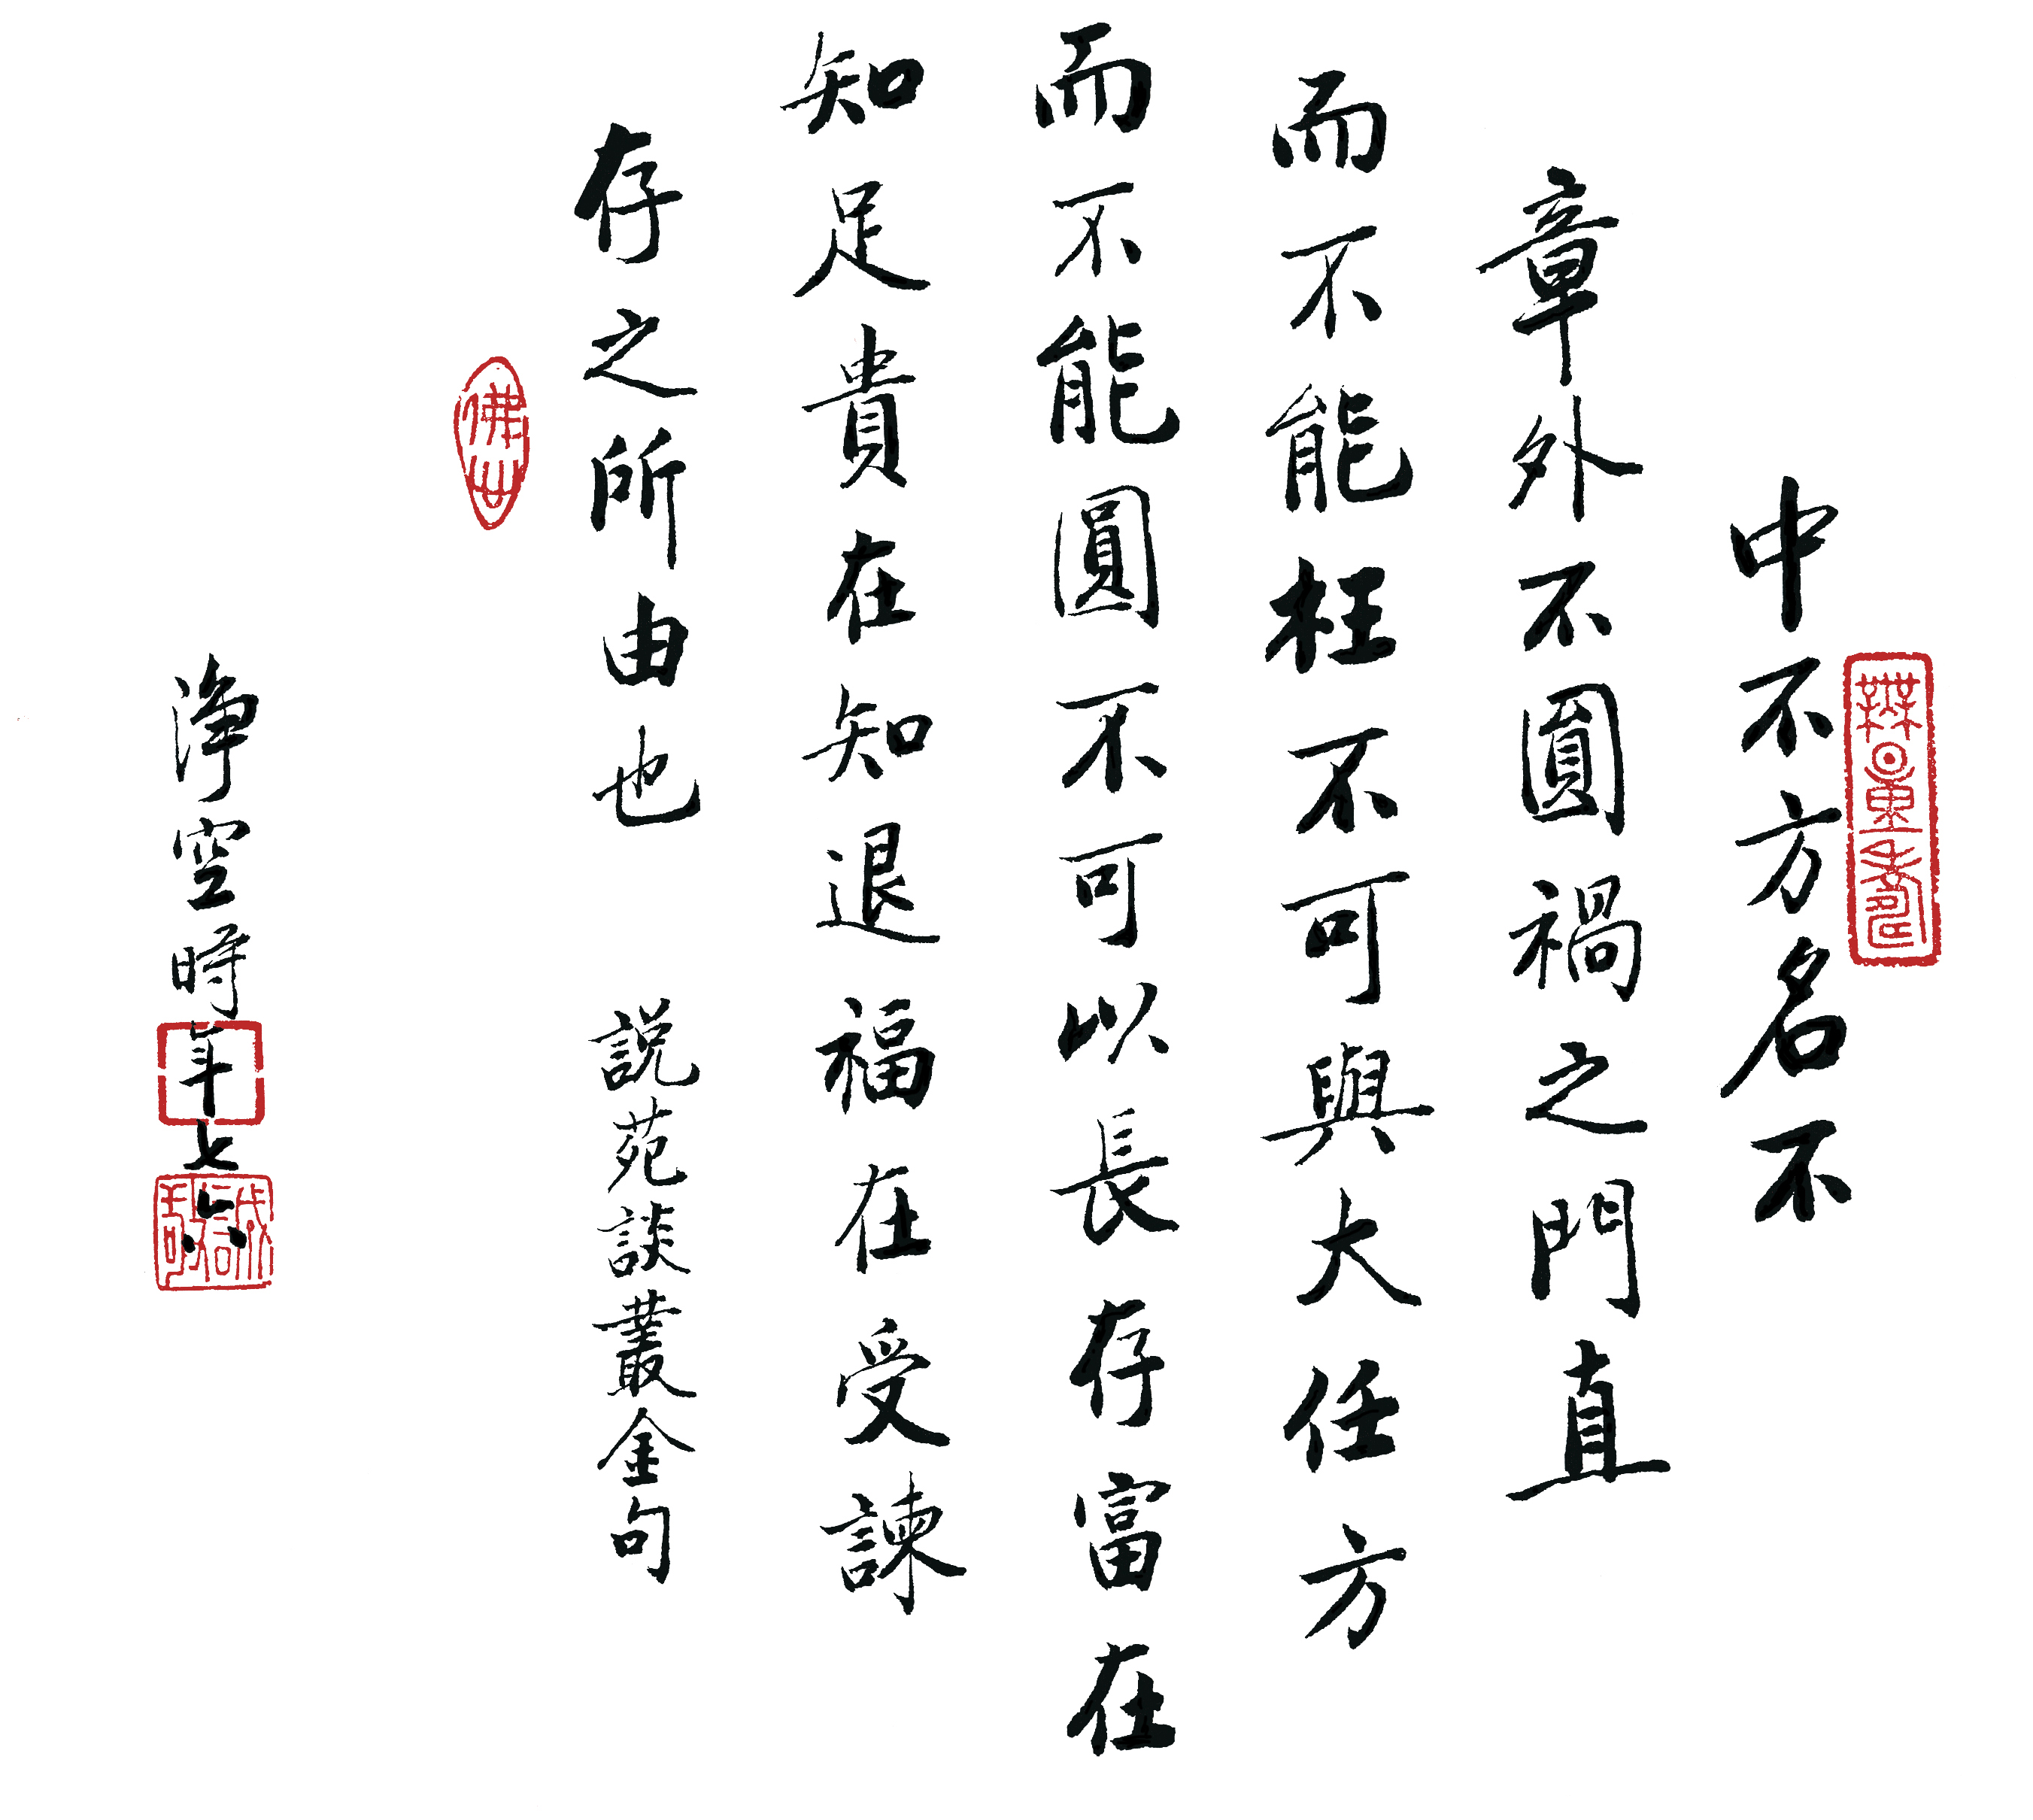 無量壽
中不方名不
章外不圓禍之門直
而不能枉不可與大任方
而不能圓不可以長存富在
知足貴在知退福在受諫
存之所由也 說苑談叢金句
淨空時年七六